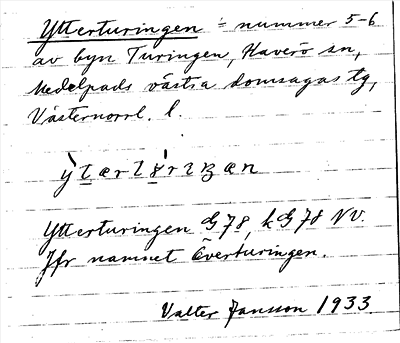 Ytterturingen = nummer 5-6
av byn Turingen, Haverö sn,
Medelpads västra domsagas tg,
Västernorrl. l.
Ytterturingen G78, kG78 NV.
Jfr namnet Överturingen.
Valter Jansson 1933